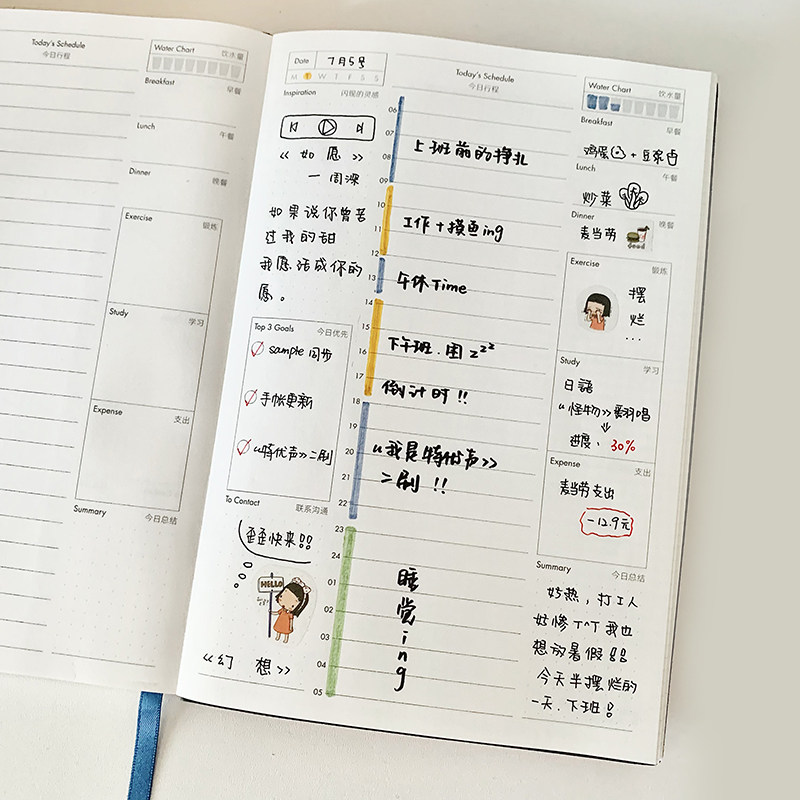 Today's Schedule
今日行程
Water Chart 饮水量
Breakfast 早餐
Lunch 午餐
Dinner 晚餐
Exercise 锻炼
Study 学习
Expense 支出
Summary 今日总结
Date 7月5号
M T W T F S S
Inspiration 闪现的灵感
《如愿》
一周深
如果说你曾苦
过我的甜
我愿活成你的
愿。
Top 3 Goals 今日优先
sample 同步
手帐更新
《特优声》二刷
To Contact 联系沟通
歪歪快来!!
HELLO
《幻想》
Today's Schedule
今日行程
06
07
08
09
10
11
12
13
14
15
16
17
18
19
20
21
22
23
24
02
03
04
05
上班前的挣扎
工作+摸鱼ing
午休Time
下午班.困zzz
倒计时!!
《我是特优声》
二刷!!
睡
觉
i
n
g
Water Chart 饮水量
Breakfast 早餐
鸡蛋 + 豆浆
Lunch 午餐
炒菜
Dinner 晚餐
麦当劳
Exercise 锻炼
摆
烂
...
Study 学习
日语
《怪物》翻唱
进度: 30%
Expense 支出
麦当劳支出
-12.9元
Summary 今日总结
好热,打工人
好惨T^T我也
想放暑假!!
今天半摆烂的
一天.下班!